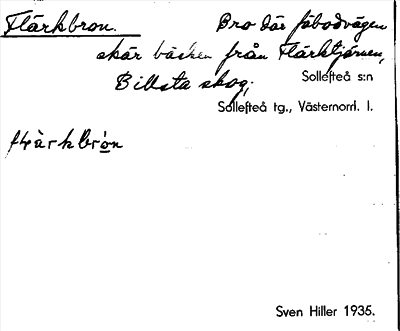 Flärkbron. Bro där fäbodvägen
skär bäcken från Flärktjärnen,
Billsta skog,
Sollefteå s:n
Sollefteå tg., Västernorrl. l.
flärkbròn
Sven Hiller 1935.